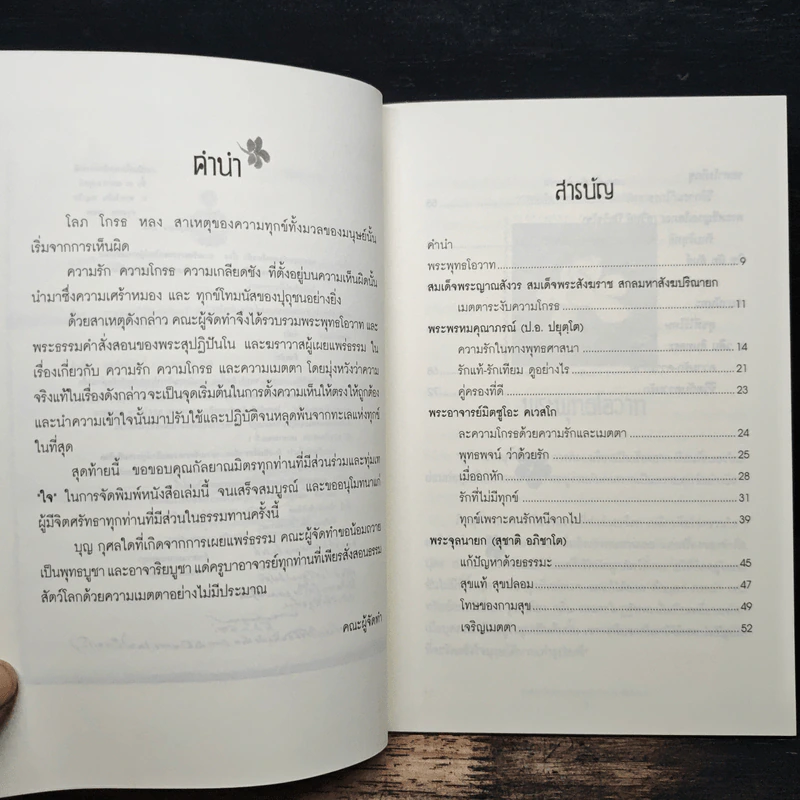 คำนำ
โลภ โกรธ หลง สาเหตุของความทุกข์ทั้งมวลของมนุษย์นั้น
เริ่มจากการเห็นผิด
ความรัก ความโกรธ ความเกลียดชัง ที่ตั้งอยู่บนความเห็นผิดนั้น
นำมาซึ่งความเศร้าหมอง และ ทุกข์โทมนัสของปุถุชนอย่างยิ่ง
ด้วยสาเหตุดังกล่าว คณะผู้จัดทำจึงได้รวบรวมพระพุทธโอวาท และ
พระธรรมคำสั่งสอนของพระสุปฏิปันโน และฆราวาสผู้เผยแพร่ธรรม ใน
เรื่องเกี่ยวกับ ความรัก ความโกรธ และความเมตตา โดยมุ่งหวังว่าความ
จริงแท้ในเรื่องดังกล่าวจะเป็นจุดเริ่มต้นในการตั้งความเห็นให้ตรงให้ถูกต้อง
และนำความเข้าใจนั้นมาปรับใช้และปฏิบัติจนหลุดพ้นจากทะเลแห่งทุกข์
ในที่สุด
สุดท้ายนี้ ขอขอบคุณกัลยาณมิตรทุกท่านที่มีส่วนร่วมและทุ่มเท
"ใจ" ในการจัดพิมพ์หนังสือเล่มนี้ จนเสร็จสมบูรณ์ และขออนุโมทนาแก่
ผู้มีจิตศรัทธาทุกท่านที่มีส่วนในธรรมทานครั้งนี้
บุญ กุศลใดที่เกิดจากการเผยแพร่ธรรม คณะผู้จัดทำขอน้อมถวาย
เป็นพุทธบูชา และอาจาริยบูชา แด่ครูบาอาจารย์ทุกท่านที่เพียรสั่งสอนธรรม
สัตว์โลกด้วยความเมตตาอย่างไม่มีประมาณ
คณะผู้จัดทำ
สารบัญ
คำนำ
พระพุทธโอวาท 9
สมเด็จพระญาณสังวร สมเด็จพระสังฆราช สกลมหาสังฆปริณายก
เมตตาระงับความโกรธ 11
พระพรหมคุณาภรณ์ (ป.อ. ปยุตฺโต)
ความรักในทางพุทธศาสนา 14
รักแท้-รักเทียม ดูอย่างไร 21
คู่ครองที่ดี 23
พระอาจารย์มิตซูโอะ คเวสโก
ละความโกรธด้วยความรักและเมตตา 24
พุทธพจน์ ว่าด้วยรัก 25
เมื่ออกหัก 28
รักที่ไม่มีทุกข์ 31
ทุกข์เพราะคนรักหนีจากไป 39
พระจุลนายก (สุชาติ อภิชาโต)
แก้ปัญหาด้วยธรรมะ 45
สุขแท้ สุขปลอม 47
โทษของกามสุข 49
เจริญเมตตา 52